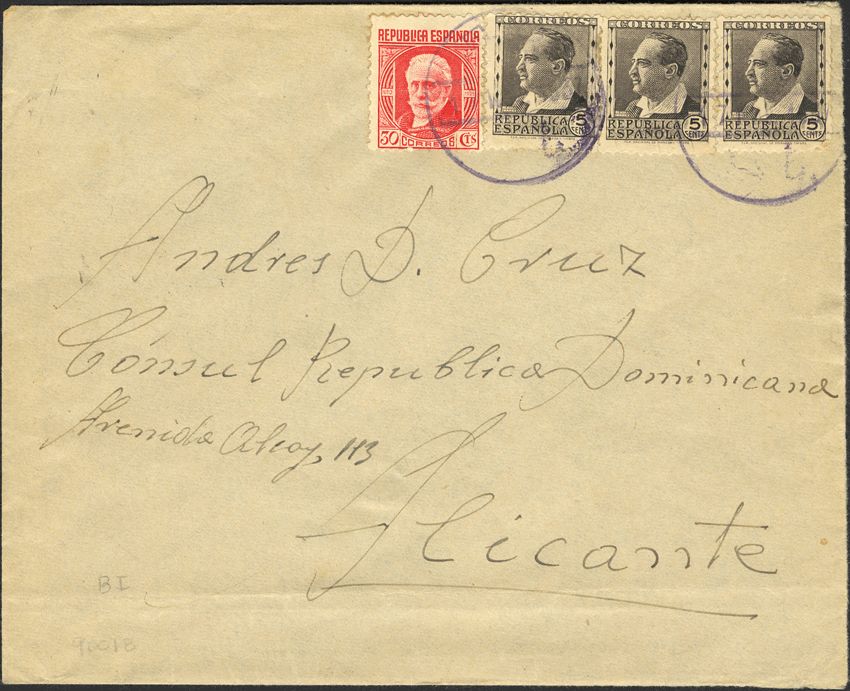 REPUBLICA ESPAÑOLA
30 CTS
CORREOS
CORREOS
REPUBLICA ESPAÑOLA
5 CENTS
CORREOS
REPUBLICA ESPAÑOLA
5 CENTS
CORREOS
REPUBLICA ESPAÑOLA
5 CENTS
Andres D. Cruz
Cónsul Republica Dominicana
Avenida Alcoy, 113
Alicante
BI